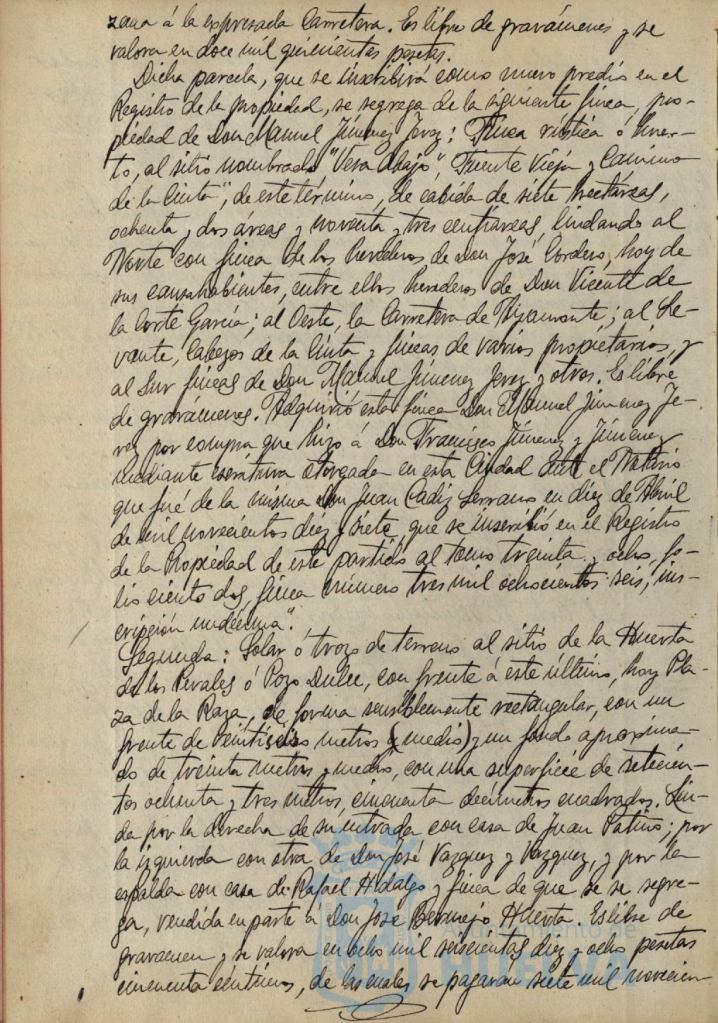 zana á la expresada Carretera. Es libre de gravámenes y se
valora en doce mil quinientas pesetas.
Dicha parcela, que se inscribirá como nuevo predio en el
Registro de la propiedad, se segrega de la siguiente finca, pro-
piedad de Don Manuel Jiménez Jerez: "Finca rústica ó huer-
to, al sitio nombrado "Vera Abajo", "Fuente Vieja y Camino
de la Cinta", de este término, de cabida de siete hectáreas,
ochenta y dos áreas y noventa y tres centiáreas, lindando al
Norte con finca de los herederos de Don José Cordero, hoy de
sus causahabientes, entre ellos herederos de Don Vicente de
la Corte García; al Oeste, la Carretera de Ayamonte; al Le-
vante, Cabezos de la Cinta y fincas de varios propietarios, y
al Sur fincas de Don Manuel Jimenez Jerez y otros. Es libre
de gravámenes. Adquirió esta finca Don Manuel Jimenez Je-
rez por compra que hizo á Don Francisco Jiménez y Jiménez
mediante escritura otorgada en esta Ciudad ante el Notario
que fué de la misma Don Juan Cádiz Serrano en diez de Abril
de mil novecientos diez y siete, que se inscribió en el Registro
de la Propiedad de este partido al tomo treinta y ocho, fo-
lio ciento dos, finca número tres mil ochocientos seis, ins-
cripción undécima".
Segunda: Solar ó trozo de terreno al sitio de la Huerta
de los Perales ó Pozo Dulce, con frente á este último, hoy Pla-
za de la Raza, de forma sensiblemente rectangular, con un
frente de veintiseis metros (y medio) y un fondo aproxima-
do de treinta metros y medio, con una superficie de setecien-
tos ochenta y tres metros, cincuenta decímetros cuadrados. Lin-
da por la derecha de su entrada con casa de Juan Patiño; por
la izquierda con otra de Don José Vazquez y Vazquez, y por la
espalda con casa de Rafael Hidalgo y finca de que se segre-
ga, vendida en parte á Don José Bermejo Huerta. Es libre de
gravamen y se valora en ocho mil seiscientas diez y ocho pesetas
cincuenta céntimos, de las cuales se pagaran siete mil novecien-